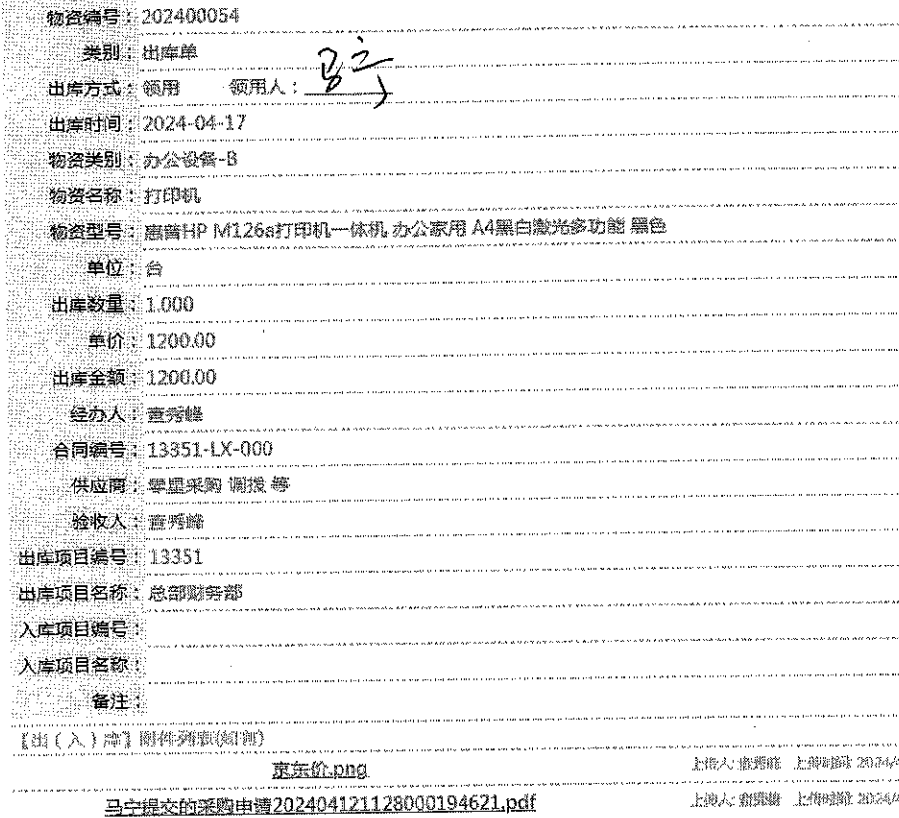 物资编号：202400054
类别：出库单
出库方式：领用 领用人：马宁
出库时间：2024-04-17
物资类别：办公设备-B
物资名称：打印机
物资型号：惠普HP M126a打印机一体机 办公家用 A4黑白激光多功能 黑色
单位：台
出库数量：1.000
单价：1200.00
出库金额：1200.00
经办人：
合同编号：13351-LX-000
供应商：零星采购 调拨 等
验收人：
出库项目编号：13351
出库项目名称：总部财务部
入库项目编号：
入库项目名称：
备注：
【出（入）库】附件列表(如有)
京东价.png 上传人: 上传时间: 2024/
马宁提交的采购申请202404121128000194621.pdf 上传人: 上传时间: 2024/